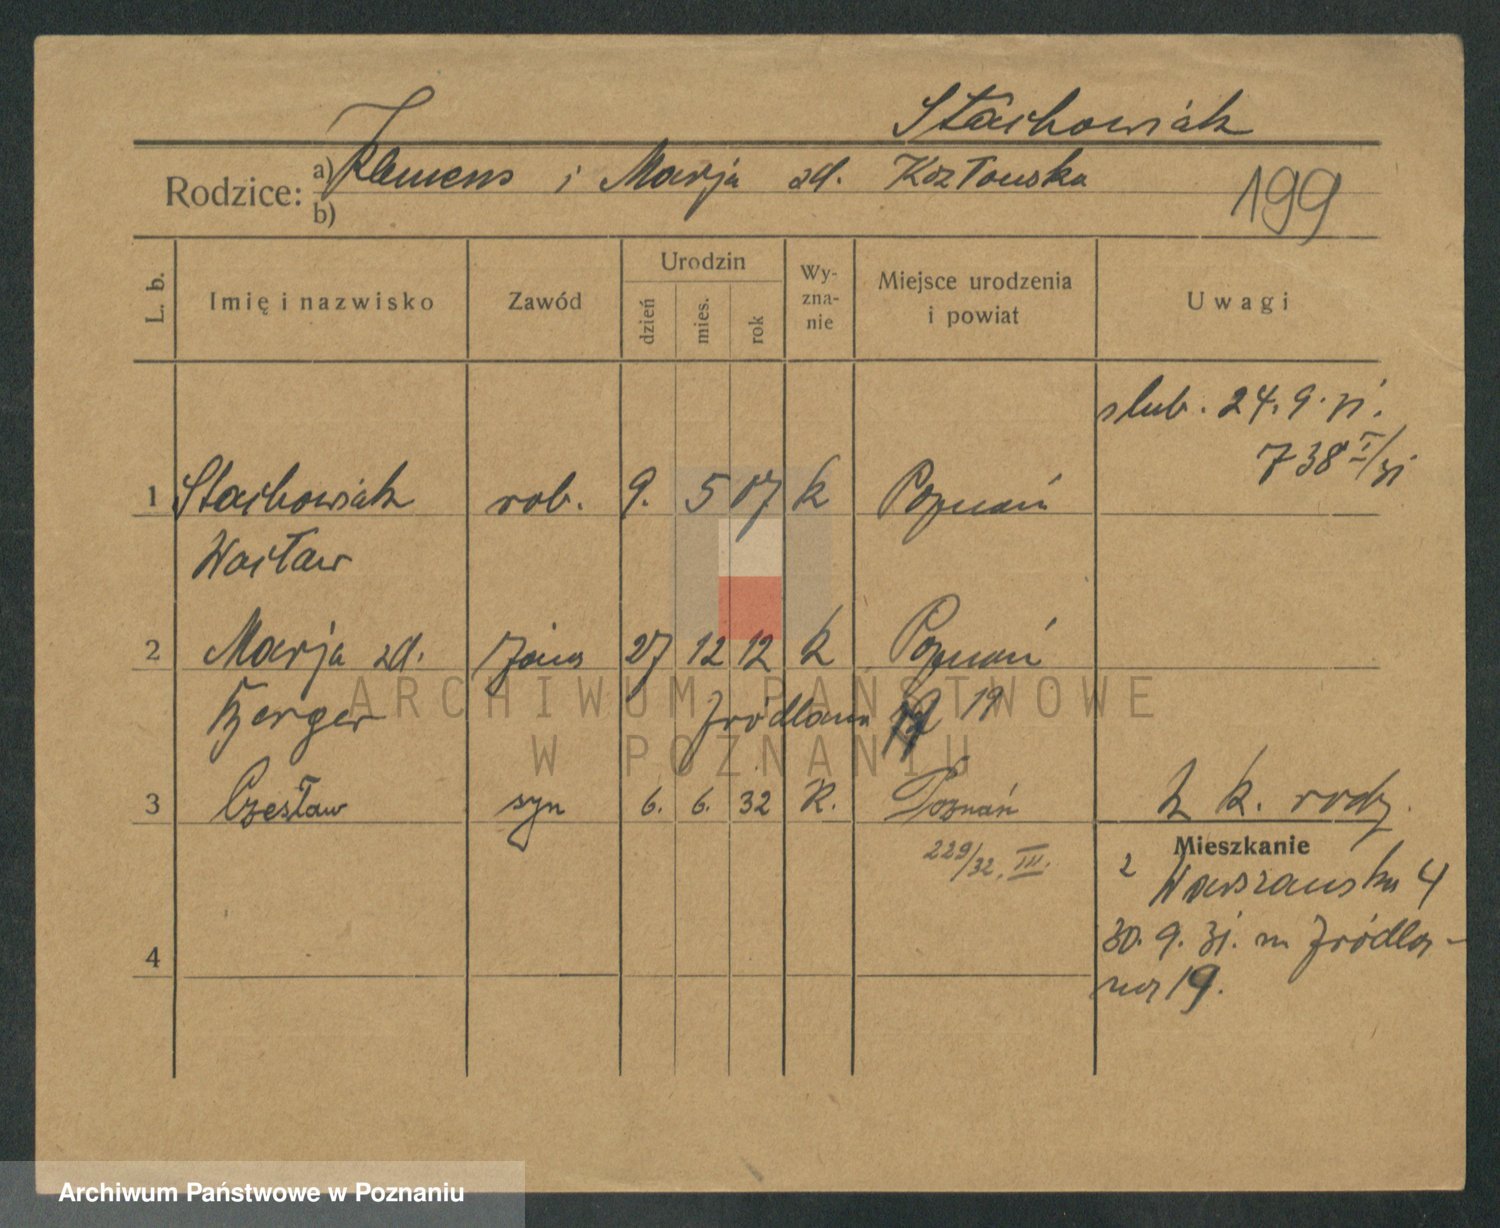 Stachowiak
Rodzice: a) Klemens i Marja zd. Kozłowska
b)
199
L. b.
Imię i nazwisko
Zawód
Urodzin
dzień
mies.
rok
Wy-
zna-
nie
Miejsce urodzenia
i powiat
Uwagi
slub. 24. 9. 31.
738 I/31
1 Stachowiak rob. 9. 5 07 k Poznań
Wacław
2 Marja zd. żona 27 12 12 k Poznań
Berger Źródlana 19
3 Czesław syn 6. 6. 32 K. Poznań
229/32. III.
z k. rodz.
Mieszkanie
2 Warszawska 4
30. 9. 31. m Źródla-
na 19.
4
ARCHIWUM PAŃSTWOWE
W POZNANIU
Archiwum Państwowe w Poznaniu